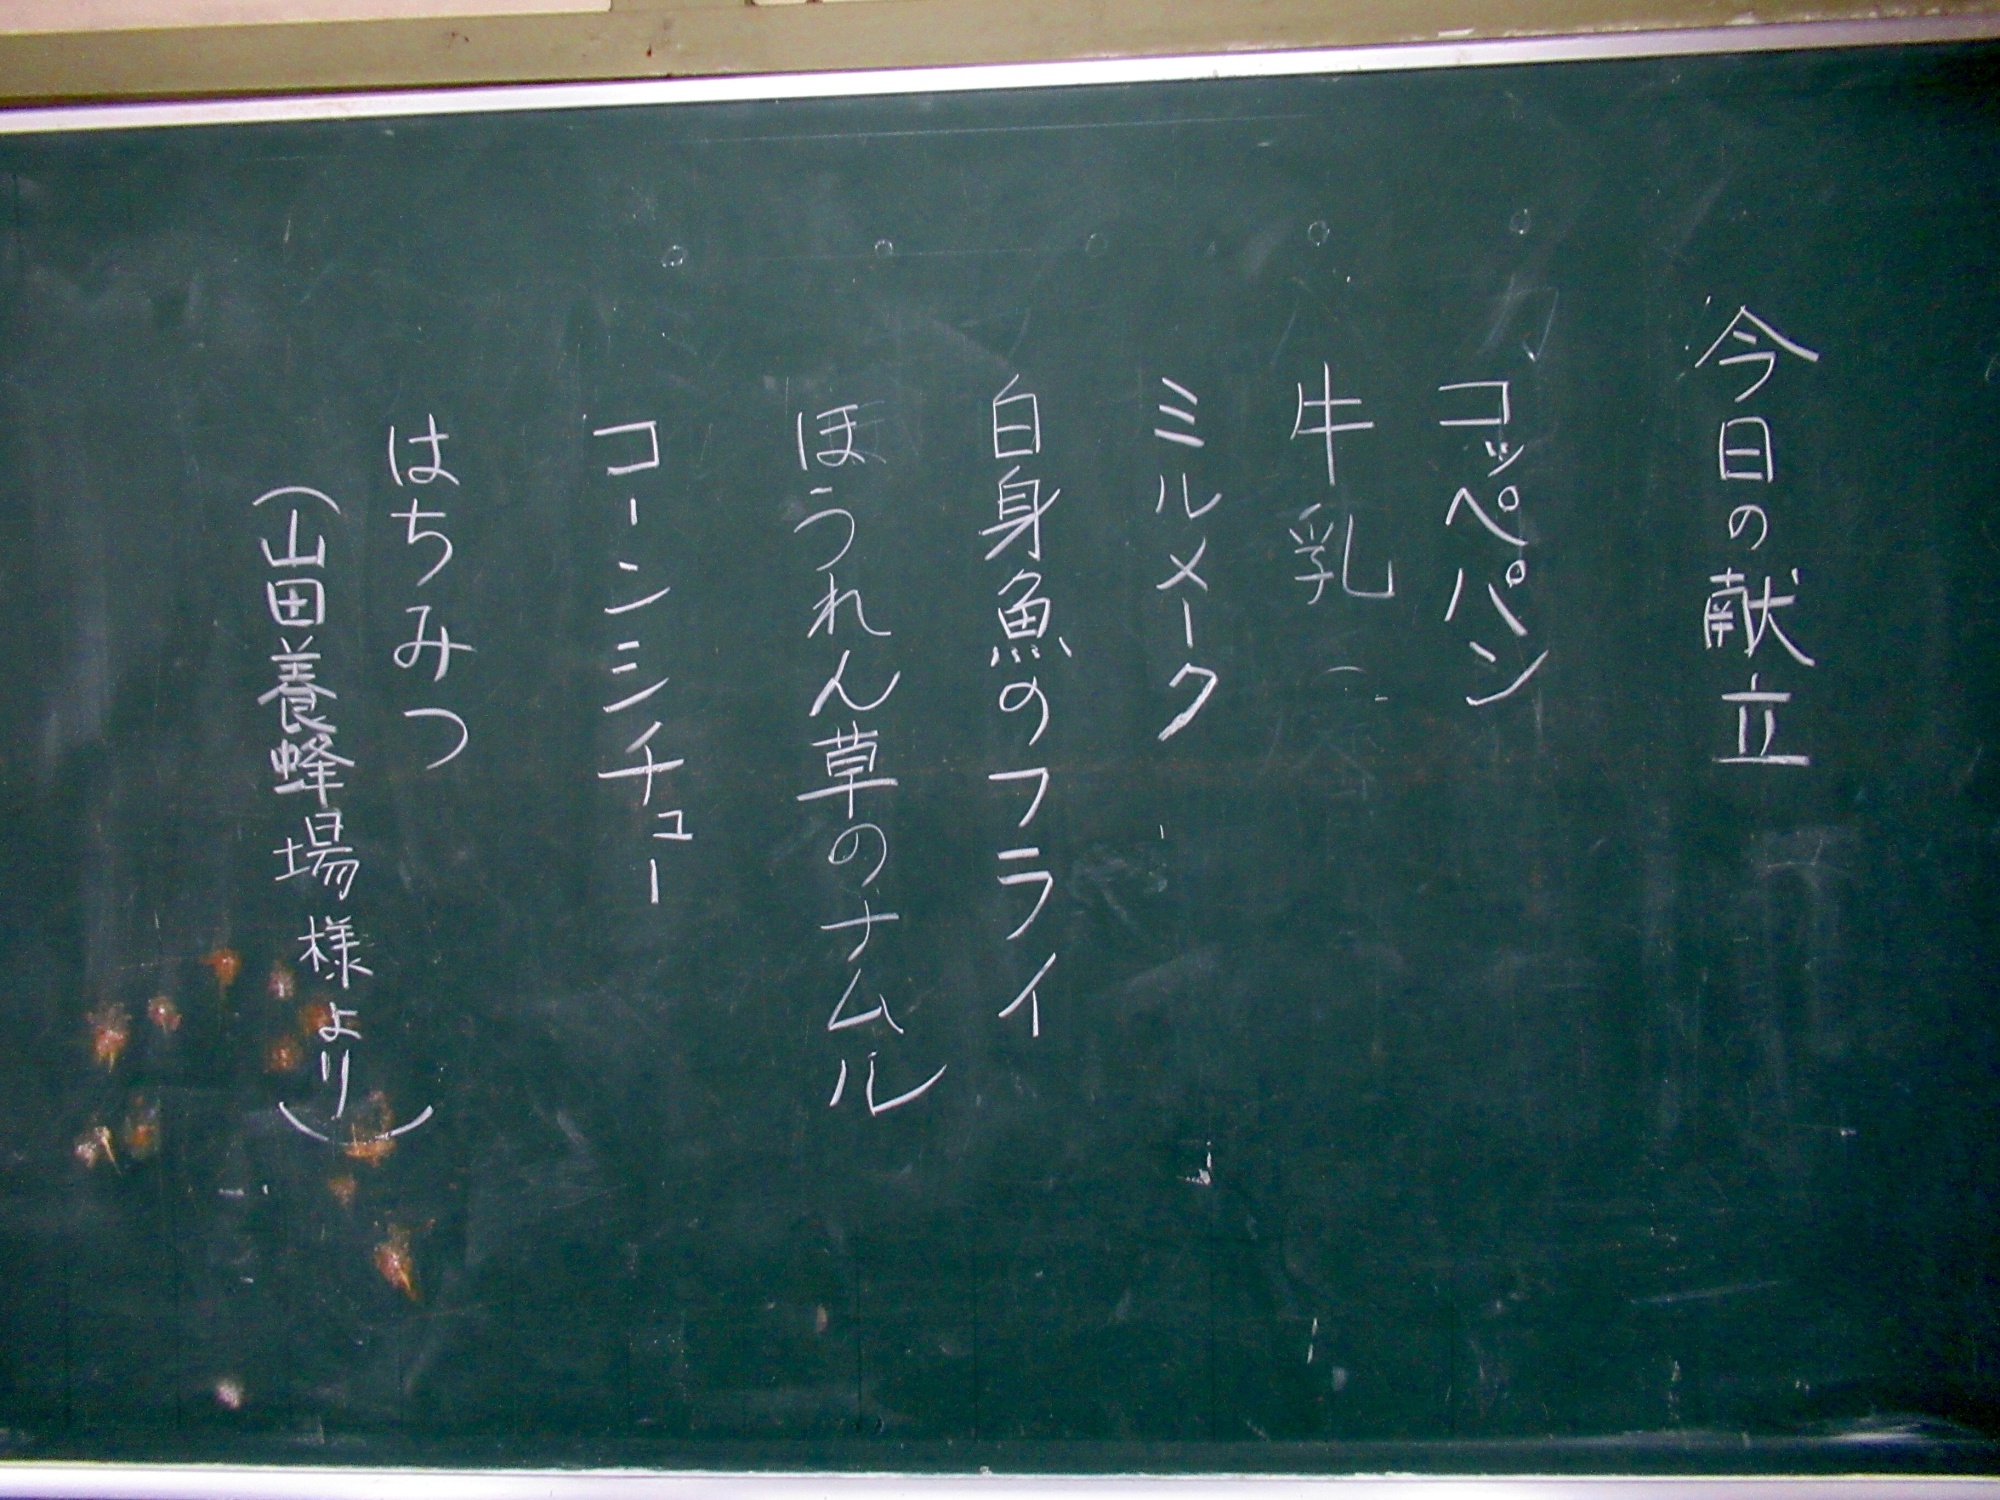 今日の献立
コッペパン
牛乳
ミルメーク
白身魚のフライ
ほうれん草のナムル
コーンシチュー
はちみつ
(山田養蜂場様より)